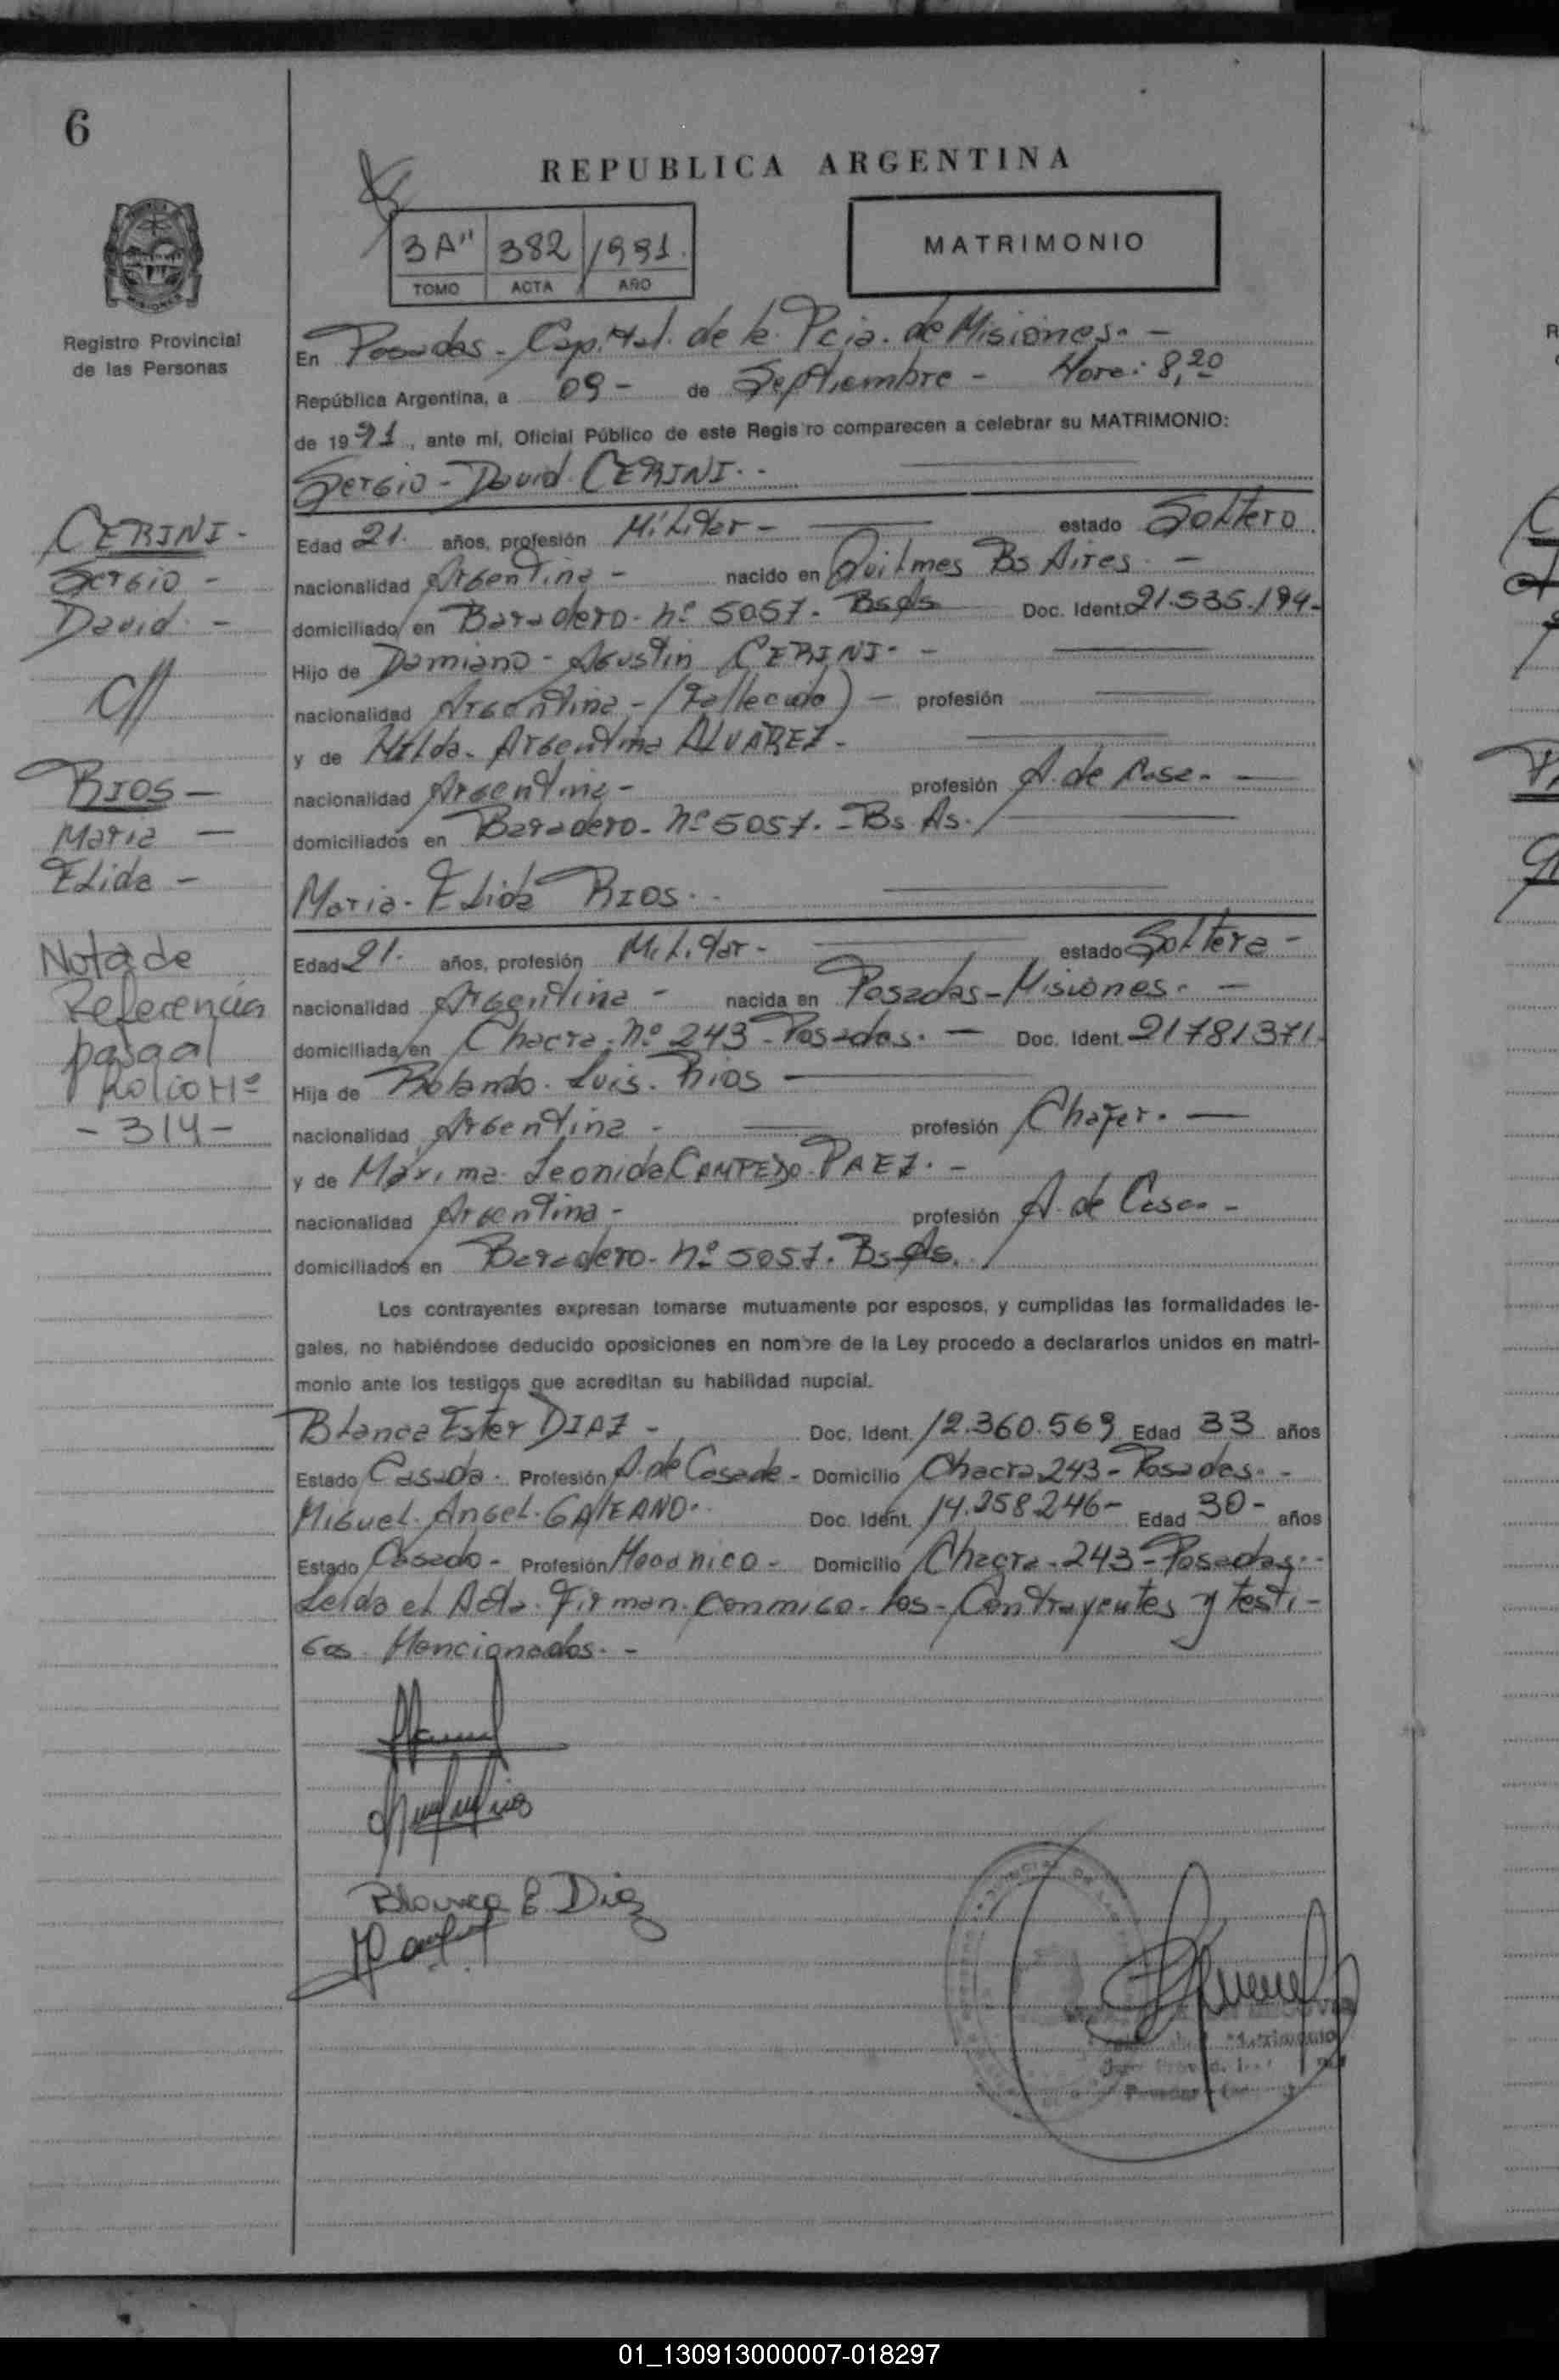 6
REPUBLICA ARGENTINA
3 A" 382 1991.
TOMO ACTA AÑO
MATRIMONIO
Registro Provincial
de las Personas
En Posadas - Capital. de la. Pcia. de Misiones. -
República Argentina, a 09 - de Septiembre - Hora: 8,20
de 1991, ante mí, Oficial Público de este Registro comparecen a celebrar su MATRIMONIO:
Sergio - David. CERINI. -
CERINI -
Sergio -
David. -
Edad 21. años, profesión Militar - estado Soltero
nacionalidad Argentina - nacido en Quilmes Bs Aires. -
domiciliado en Baradero - Nº 5057. Bs As Doc. Ident. 21.535.194-
Hijo de Damiano - Agustin CERINI. -
nacionalidad Argentina - (Fallecido) - profesión
y de Hilda - Argentina ALVAREZ -
nacionalidad Argentina - profesión A. de Casa. -
domiciliados en Baradero - Nº 5057. - Bs. As.
RIOS -
Maria -
Elida -
Maria - Elida RIOS. -
Edad 21. años, profesión Militar - estado Soltera -
nacionalidad Argentina - nacida en Posadas - Misiones. -
domiciliada en Chacra. Nº 243 - Posadas. - Doc. Ident. 21781371.
Hija de Rolando. Luis. Rios
nacionalidad Argentina - profesión Chofer. -
y de Máxima. Leonida CAMPEDO - PAEZ. -
nacionalidad Argentina - profesión A. de Casa. -
domiciliados en Baradero - Nº 5057. Bs As.
Nota de
Referencia
pasa al
Folio Nº
- 314 -
Los contrayentes expresan tomarse mutuamente por esposos, y cumplidas las formalidades le-
gales, no habiéndose deducido oposiciones en nombre de la Ley procedo a declararlos unidos en matri-
monio ante los testigos que acreditan su habilidad nupcial.
Blanca Ester DIAZ - Doc. Ident. 12.360.569 Edad 33 años
Estado Casada - Profesión A. de Casade - Domicilio Chacra 243 - Posadas. -
Miguel. Angel. GALEANO. Doc. Ident. 14.258.246 - Edad 30 - años
Estado Casado - Profesión Mecanico - Domicilio Chacra - 243 - Posadas. -
Leida el Acta. Firman. conmigo - los - Contrayentes y testi-
gos. Mencionados. -
Blanca E. Diaz
01_130913000007-018297